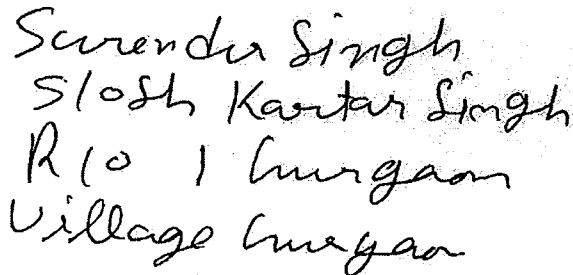 Surender Singh
S/o Sh Kartar Singh
R/o 1 Gurgaon
Village Gurgaon